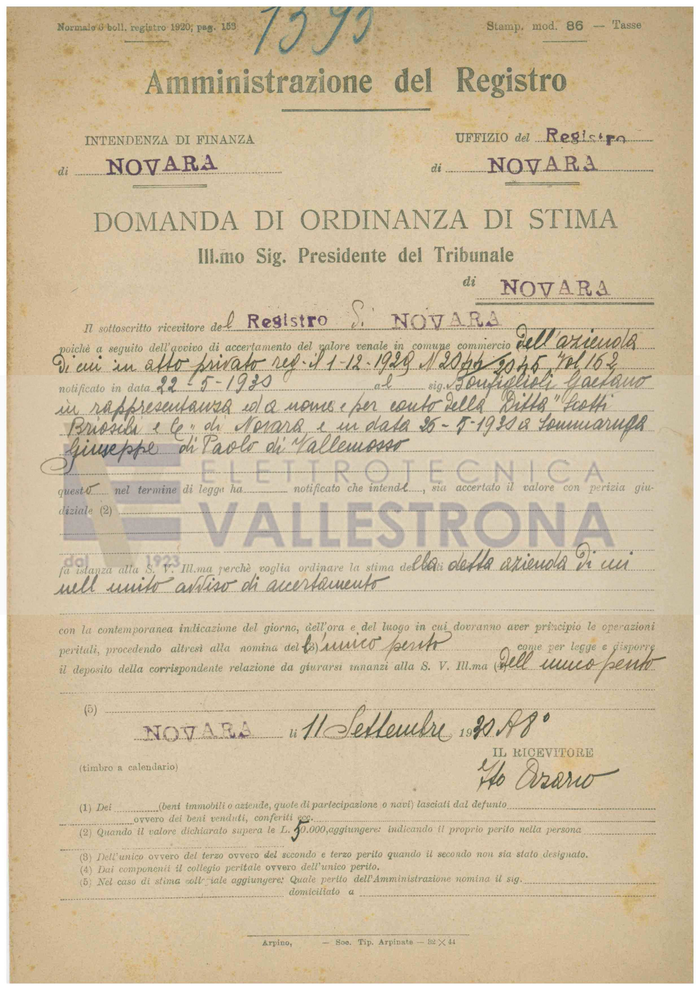 Normale 6 boll. registro 1920; pag. 153
Stamp. mod. 86 — Tasse
1393
Amministrazione del Registro
INTENDENZA DI FINANZA
UFFIZIO del Registro
di NOVARA
di NOVARA
DOMANDA DI ORDINANZA DI STIMA
Ill.mo Sig. Presidente del Tribunale
di NOVARA
Il sottoscritto ricevitore del Registro di NOVARA
poichè a seguito dell'avviso di accertamento del valore venale in comune commercio dell'azienda
di cui in atto privato reg. il 1-12-1929 N 2044/2045 Vol 162
notificato in data 22-5-1930 al sig. Bonfiglioli Gaetano
in rappresentanza ed a nome e per conto della Ditta "Scotti
Briosihi e C" di Novara e in data 26-5-1930 a Sommaruga
Giuseppe di Paolo di Vallemosso
ELETTROTECNICA
VALLESTRONA
dal 1923
questo nel termine di legge ha notificato che intende, sia accertato il valore con perizia giu-
diziale (2)
fa istanza alla S. V. Ill.ma perchè voglia ordinare la stima della detta azienda di cui
nell'unito avviso di accertamento
con la contemporanea indicazione del giorno, dell'ora e del luogo in cui dovranno aver principio le operazioni
peritali, procedendo altresì alla nomina del (3) l'unico perito come per legge e disporre
il deposito della corrispondente relazione da giurarsi innanzi alla S. V. Ill.ma (4) dell'unico perito
(5)
NOVARA li 11 Settembre 1930 A 8°
IL RICEVITORE
(timbro a calendario)
fto Azario
(1) Dei (beni immobili o aziende, quote di partecipazione o navi) lasciati dal defunto
ovvero dei beni venduti, conferiti ecc.
(2) Quando il valore dichiarato supera le L. 50.000, aggiungere: indicando il proprio perito nella persona
(3) Dell'unico ovvero del terzo ovvero del secondo e terzo perito quando il secondo non sia stato designato.
(4) Dai componenti il collegio peritale ovvero dell'unico perito.
(5) Nel caso di stima collegiale aggiungere: Quale perito dell'Amministrazione nomina il sig.
domiciliato a
Arpino, — Soc. Tip. Arpinate — 32 × 44